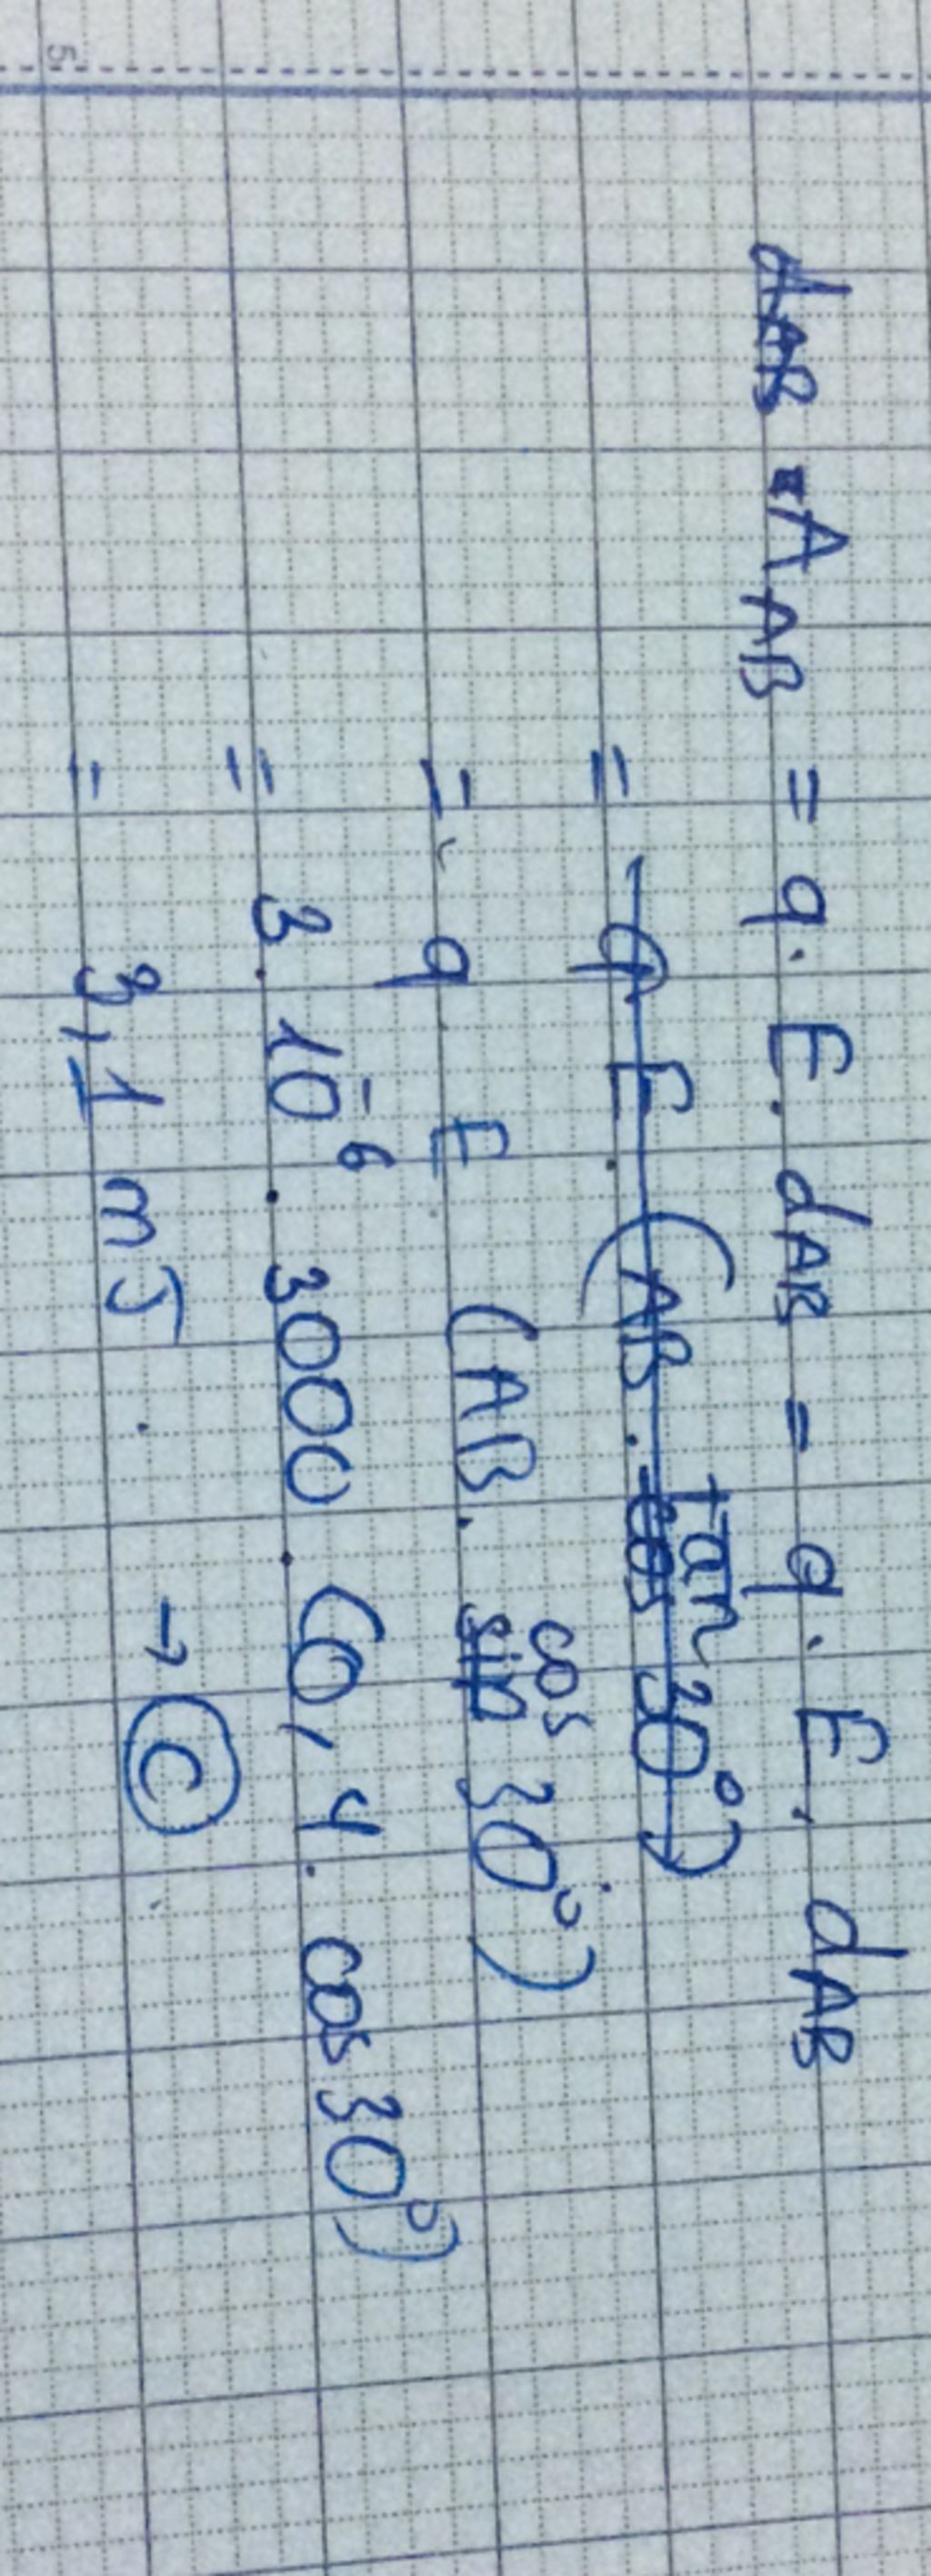 A_AB = q. E. d_AB = q. E. d_AB
= q. E. (AB. tan 30°)
= q. E. (AB. cos 30°)
= 3. 10^-6. 3000. (0,4. cos 30°)
= 3,1 mJ. → C